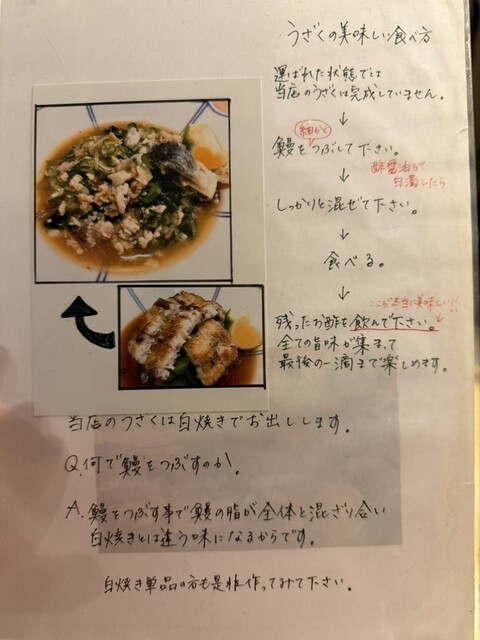 うざくの美味しい食べ方
運ばれた状態では
当店のうざくは完成していません。
↓
細かく
鰻をつぶして下さい。
酢醤油が
白濁したら
↓
しっかりと混ぜて下さい。
↓
食べる。
↓
ここが本当に美味しい!!
残ったお酢を飲んで下さい。
全ての旨味が集まって
最後の一滴まで楽しめます。
当店のうざくは白焼きでお出しします。
Q.何で鰻をつぶすのか。
A.鰻をつぶす事で鰻の脂が全体と混ざり合い
白焼きとは違う味になるからです。
白焼き単品の方も是非作ってみて下さい。